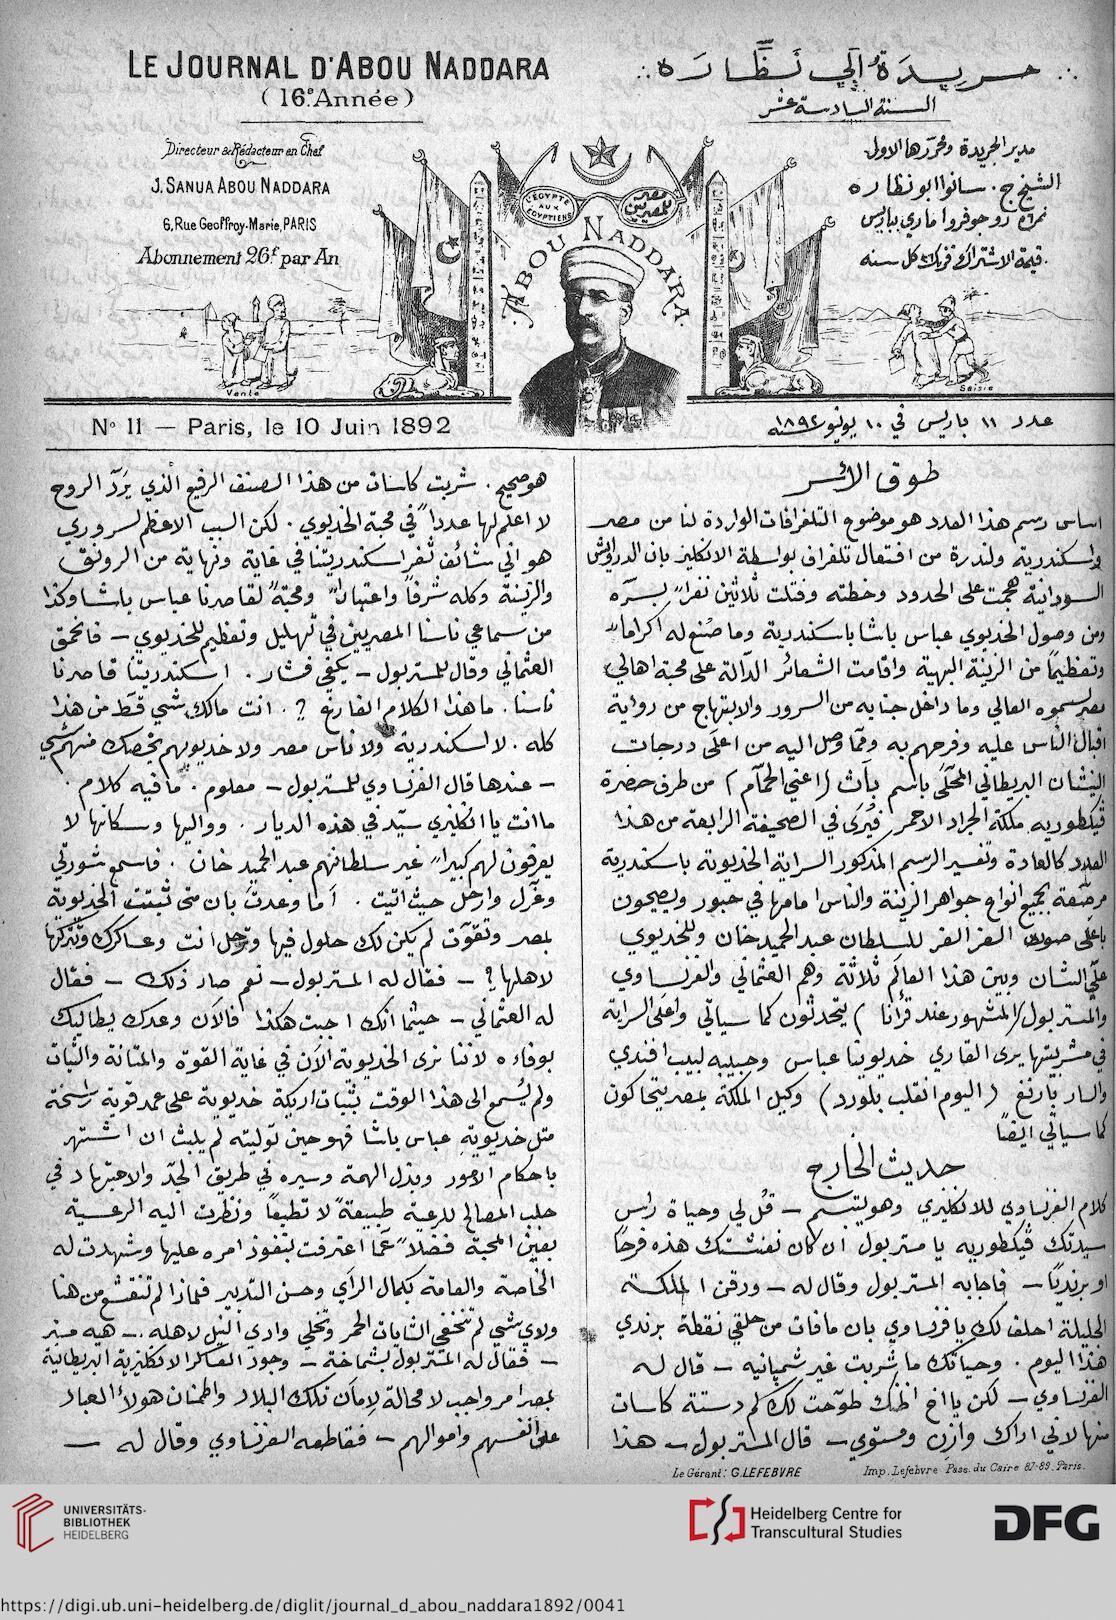 LE JOURNAL D'ABOU NADDARA
(16e Année)
Directeur & Rédacteur en Chef
J. SANUA ABOU NADDARA
6, Rue Geoffroy-Marie, PARIS
Abonnement 26f par An
جريدة أبي نظارة
السنة السادسة عشر
مدير الجريدة ومحررها الاول
الشيخ ج. سانوا ابو نظاره
نمرة ٦ رو جوفروا ماري بباريس
قيمة الاشتراك فرنك ٢٦ كل سنه
L'ÉGYPTE AUX ÉGYPTIENS
مصر للمصريين
ABOU NADDARA
Vente
Saisie
No 11 — Paris, le 10 Juin 1892
عدد ١١ باريس في ١٠ يونيو سنة ١٨٩٢
طوق الأسر
اساس رسم هذا العدد هو موضوع التلغرافات الواردة لنا من مصر
واسكندرية ولندرة من افتعال تلغراف بواسطة الانكليز بان الدراويش
السودانية هجمت على الحدود وخطته وقتلت ثلاثين نفراً بسرّه
ومن وصول الخديوي عباس باشا باسكندرية وما صُنع له اكراماً
وتعظيماً من الزينة البهية واقامت الشعائر الدالة على محبة اهالي
مصر لسموه العالي وما داخل جنابه من السرور والابتهاج من رواية
اقبال الناس عليه وفرحهم به وممّا وصل اليه من اعلى درجات
النيشان البريطاني المحلّى باسم باث (اعني الحمّام) من طرف حضرة
فيكطوريه ملكة الجراد الاحمر فيُرى في الصحيفة الرابعة من هذا
العدد كالعادة وتفسير الرسم المذكور السراية الخديوية باسكندرية
مرصّعة بجميع انواع جواهر الزينة والناس امامها في حبور ويصيحون
باعلى صوت العز العز للسلطان عبد الحميد خان وللخديوي
علي الشان وبين هذا العالَم ثلاثة وهم العثماني والفرنساوي
والمستر بول (المشهور عند قرأنا) يتحدثون كما سياتي واعلى السراية
في مشربيتها يرى القاري خديوينا عباس وحبيبه لبيب افندي
والسار بارنغ (اليوم انقلب بلورد) وكيل الملكة بمصر يتحاكون
كما سياتي ايضاً
حديث الخارج
كلام الفرنساوي للانكليزي وهو يتبسم — قُل لي وحياة راس
سيدتك فيكطوريه يا مستر بول ان كان نفنشتك هذه فرحاً
او برندياً — فاجابه المستر بول وقال له — ودقن الملكة
الجليلة احلف لك يا فرنساوي بان ما فات من حلقي نقطة برندي
هذا اليوم . وحياتك ما شربت غير شمبانيه — قال له
الفرنساوي — لكن يا اخ اظنك طوّحت لك كم دستة كاسات
منها لاني اراك وازن ومستوي — قال المستر بول — هذا
هو صحيح . شربت كاسات من هذا الصنف الرفيع الذي يَردّ الروح
لا اعلم لها عدداً في محبة الخديوي . لكن السبب الاعظم لسروري
هو اني شائف ثغر اسكندريتنا في غاية ونهاية من الرونق
والزينة وكله شرفاً واعتباراً ومحبةً لقاصرنا عباس باشا وكذا
من سماعي ناسنا المصريين في تهليل وتعظيم للخديوي — فاتحمق
العثماني وقال للمستر بول — يكفى فشار . اسكندريتنا قاصرنا
ناسنا . ما هذا الكلام الفارغ ? . انت مالك شي قط من هذا
كله . لا اسكندرية ولا ناس مصر ولا خديويهم يخصك منهم شي
— عندها قال الفرنساوي للمستر بول — معلوم . ما فيه كلام .
ما انت يا انكليزي سيّد في هذه الديار . وواليها وسكانها لا
يعرفون لهم كبيراً غير سلطانهم عبد الحميد خان . فاسمع شورتي
وعزّل وارحل حيث اتيت . أما وعدتَ بان متى تثبتت الخديوية
بمصر وتقوّت لم يكن لك حلول فيها وترحل انت وعساكرك وتتركها
لاهلها ? — فقال له المستر بول — نعم صار ذلك — فقال
له العثماني — حيثما انك اجبت هكذا فالآن وعدك يطالبك
بوفاءه لاننا نرى الخديوية الآن في غاية القوة والمتانة والثبات
ولم يُسمع الى هذا الوقت بثبات اريكة خديوية على عمد قوية راسخة
مثل خديوية عباس باشا فهو حين توليته لم يلبث ان اشتهر
باحكام الامور وبذل الهمة وسيره في طريق الجدّ والاجتهاد في
جلب المصالح للرعية طبيعةً لا تطبعاً ونظرت اليه الرعية
بعين المحبة فضلاً عمّا اعترفت بنفوذ امره عليها وشهدت له
الخاصة والعامة بكمال الراي وحسن التدبير فلماذا لم تنقشع من هنا
ولاي شي لم تختفي الثيابات الحمر وتخلي وادي النيل لاهله . — هيه مستر
— فقال له المستر بول بشماخة — وجود العساكر الانكليزية البريطانية
بمصر امر واجب لا محالة لامان تلك البلاد واطمئنان هولاء العباد
على انفسهم واموالهم — فقاطعه الفرنساوي وقال له —
Le Gérant: G. LEFEBVRE
Imp. Lefebvre Pass. du Caire 87-89. Paris.
UNIVERSITÄTS-
BIBLIOTHEK
HEIDELBERG
Heidelberg Centre for
Transcultural Studies
DFG
https://digi.ub.uni-heidelberg.de/diglit/journal_d_abou_naddara1892/0041